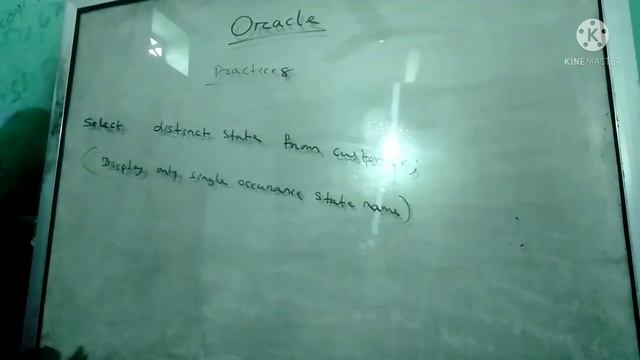 Oracle
Practices
KINEMASTER
Select distinct state from customer;
(Display only single occurance state name)